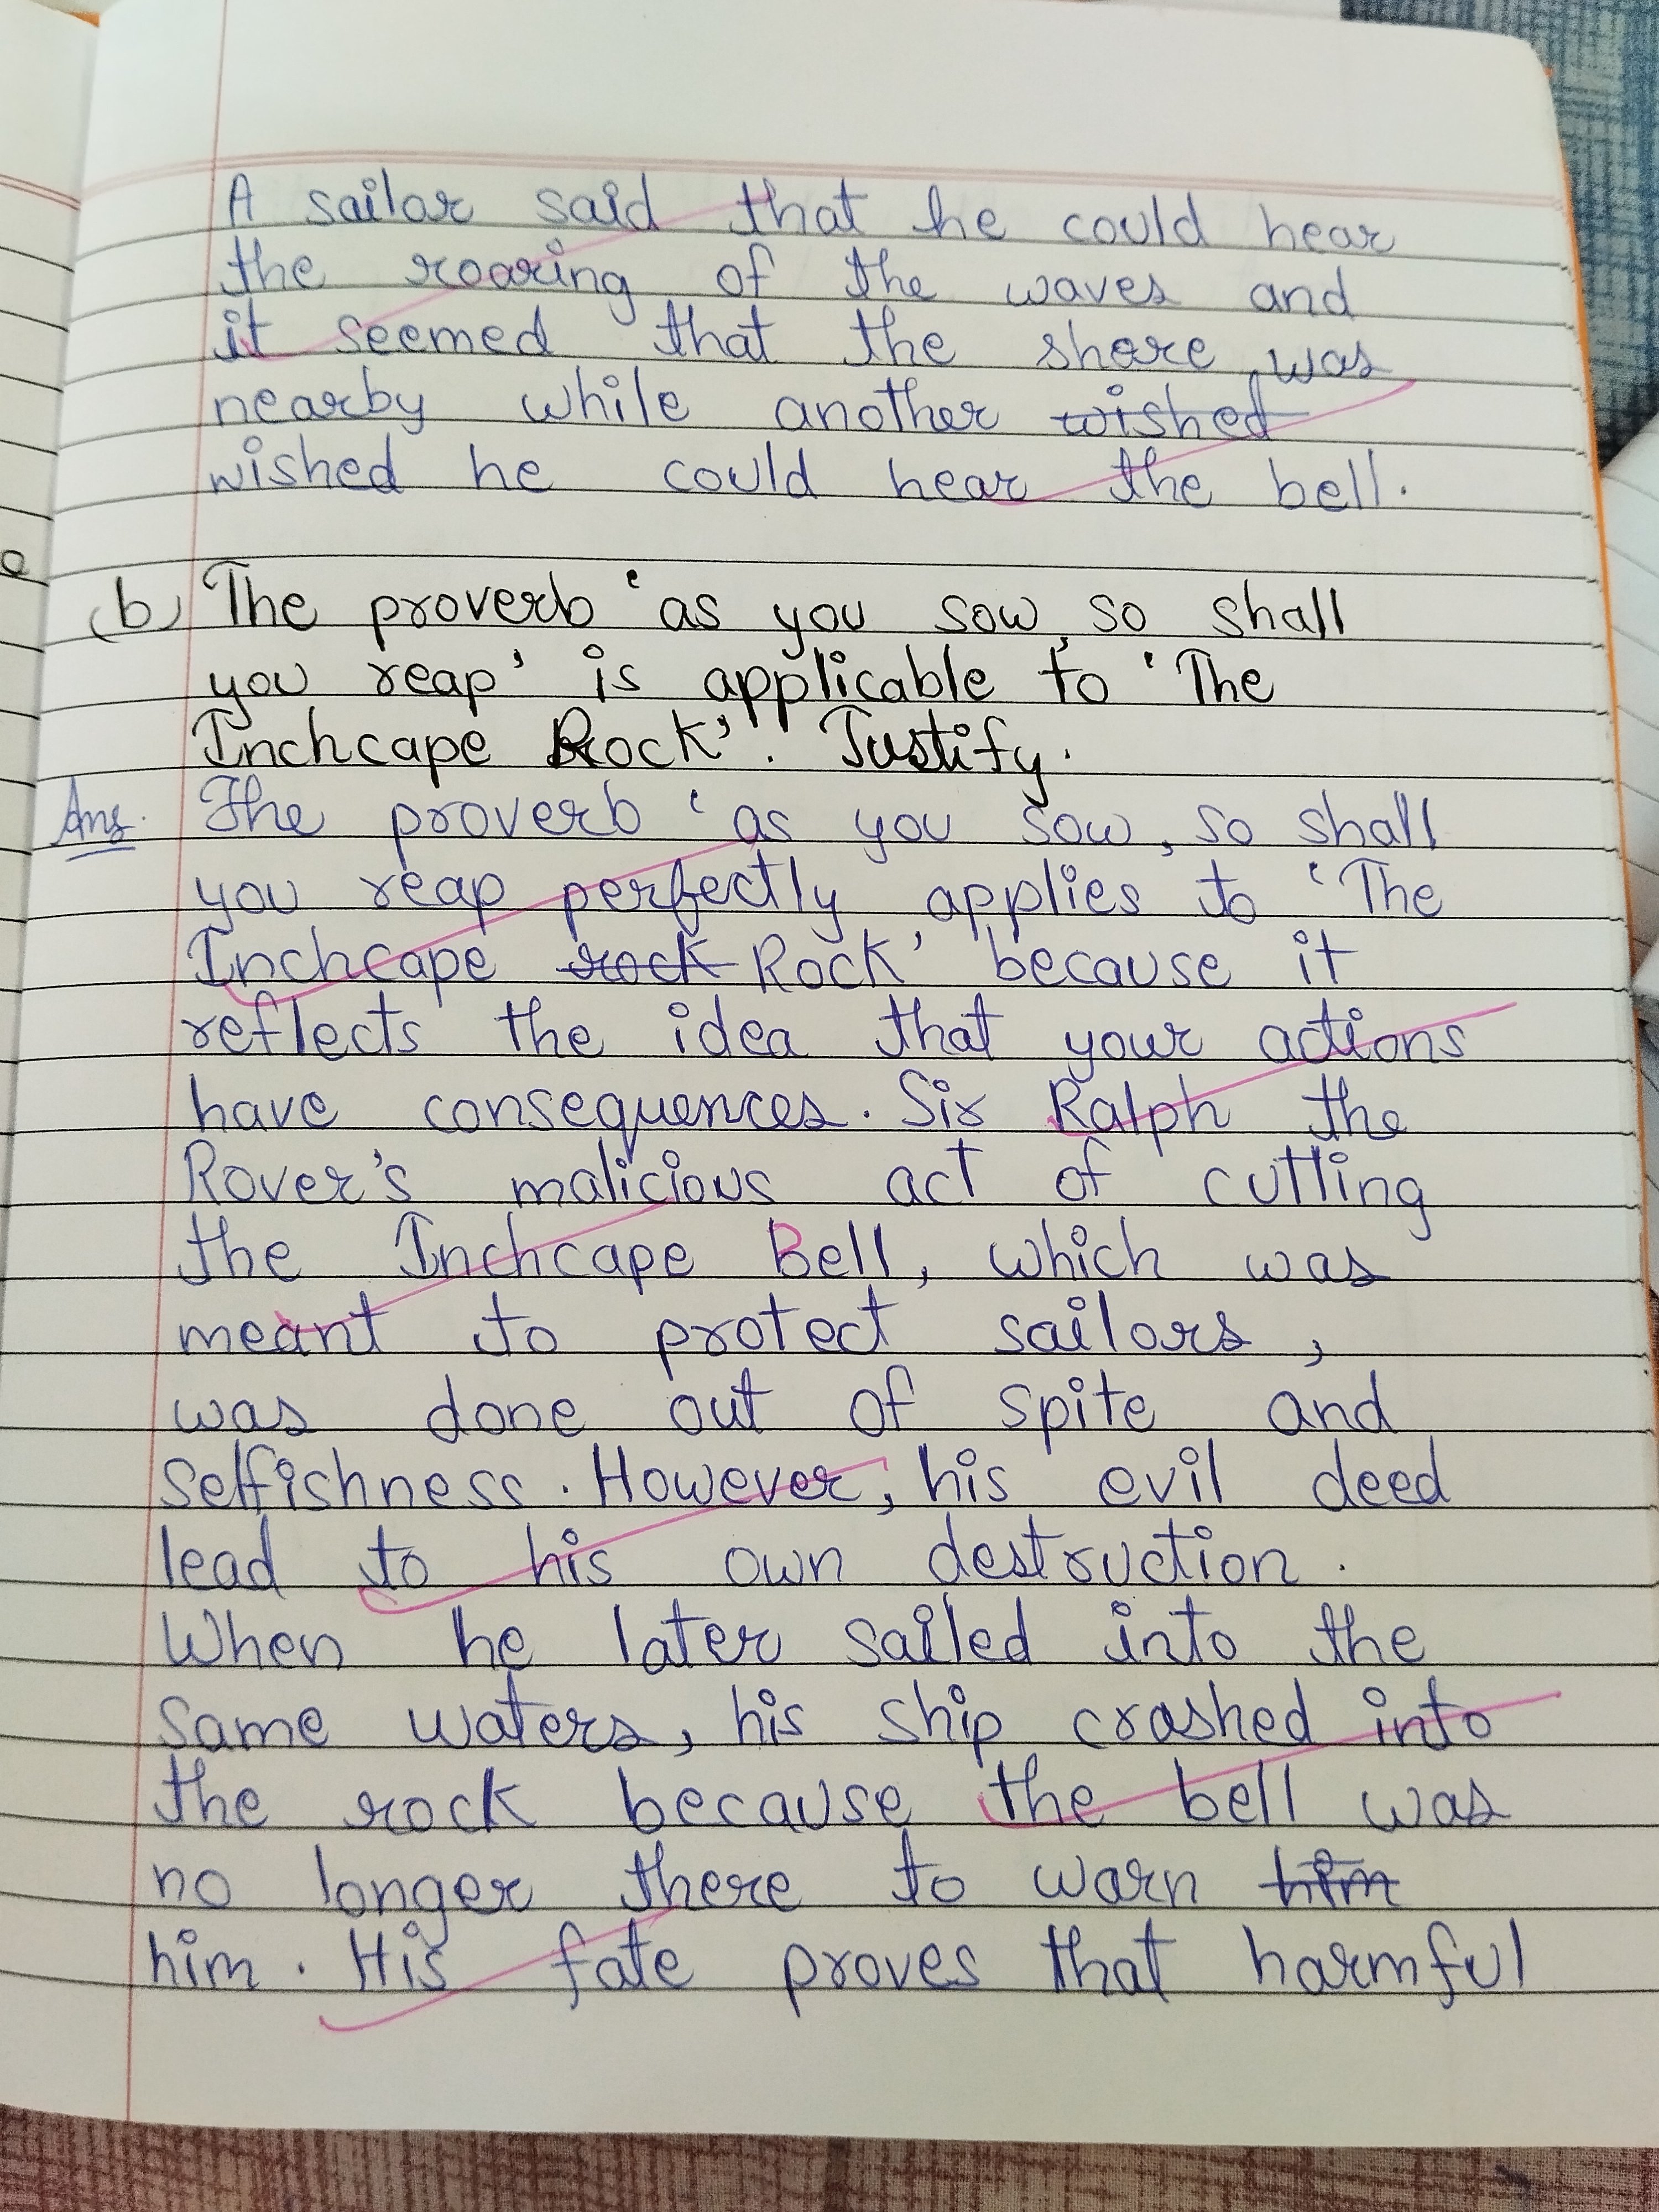 A sailor said that he could hear
the roaring of the waves and
it seemed that the shore was
nearby while another wished
wished he could hear the bell.
(b) The proverb 'as you sow, so shall
you reap' is applicable to 'The
Inchcape Rock'. Justify.
Ans. The proverb 'as you sow, so shall
you reap perfectly applies to 'The
Inchcape rock Rock' because it
reflects the idea that your actions
have consequences. Sir Ralph the
Rover's malicious act of cutting
the Inchcape Bell, which was
meant to protect sailors,
was done out of spite and
selfishness. However, his evil deed
lead to his own destruction.
When he later sailed into the
same waters, his ship crashed into
the rock because the bell was
no longer there to warn him
him. His fate proves that harmful